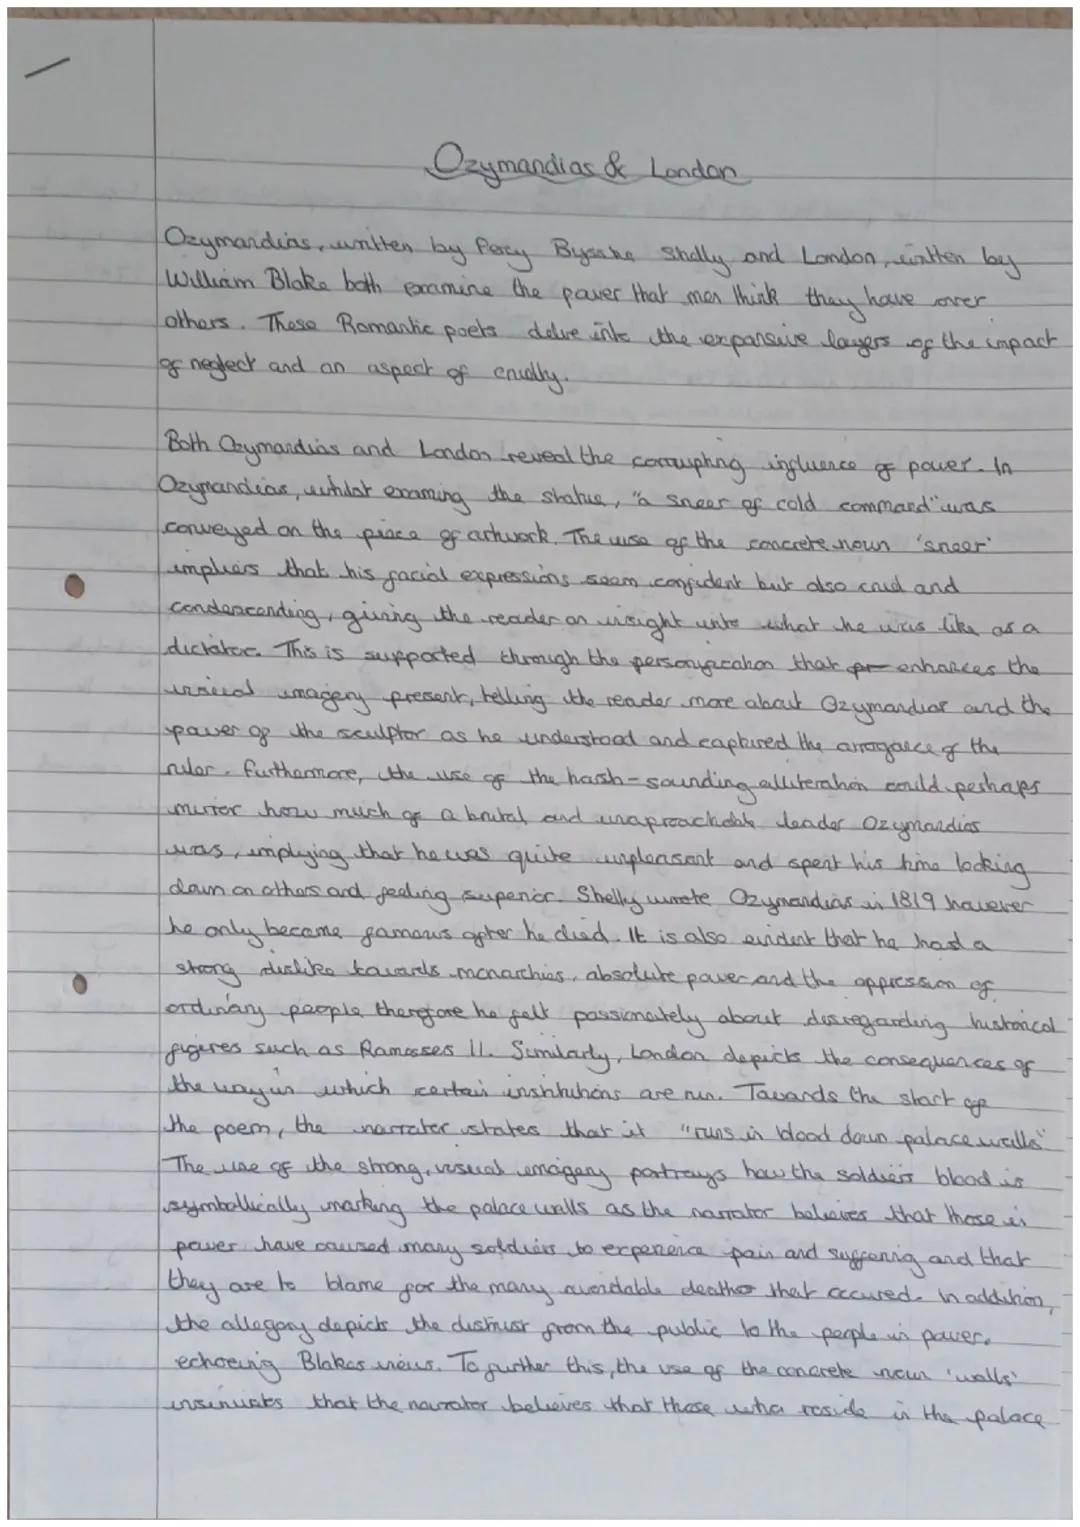 Ozymandias & London
Ozymandias, written by Percy Bysshe Shelly and London, written by
William Blake both examine the power that men think they have over
others. These Romantic poets delve into the expansive layers of the impact
of neglect and an aspect of cruelty.
Both Ozymandias and London reveal the corrupting influence of power. In
Ozymandias, whilst examing the statue, "a sneer of cold command" was
conveyed on the piece of artwork. The use of the concrete noun 'sneer'
impliers that his facial expressions seem confident but also cruel and
condescending, giving the reader an insight into what he was like as a
dictator. This is supported through the personification that enhances the
visual imagery present, telling the reader more about Ozymandias and the
power of the sculptor as he understood and captured the arrogance of the
ruler. Furthermore, the use of the harsh-sounding alliteration could perhaps
mirror how much of a brutal and unaproachable leader Ozymandias
was, implying that he was quite unpleasant and spent his time looking
down on others and feeling superior. Shelly wrote Ozymandias in 1819 however
he only became famous after he died. It is also evident that he had a
strong dislike towards monarchies, absolute power and the oppression of
ordinary people therefore he felt passionately about disregarding historical
figeres such as Ramesses II. Similarly, London depicts the consequences of
the way in which certain institutions are run. Towards the start of
the poem, the narrator states that it "runs in blood down palace walls"
The use of the strong, visual imagery portrays how the soldiers blood is
symbollically marking the palace walls as the narrator believes that those in
power have caused many soldiers to experience pain and suffering and that
they are to blame for the many avoidable deaths that occured. In addition,
the allegory depicts the distrust from the public to the people in power,
echoeing Blakes views. To further this, the use of the concrete noun 'walls'
insinuates that the narrator believes that those who reside in the palace